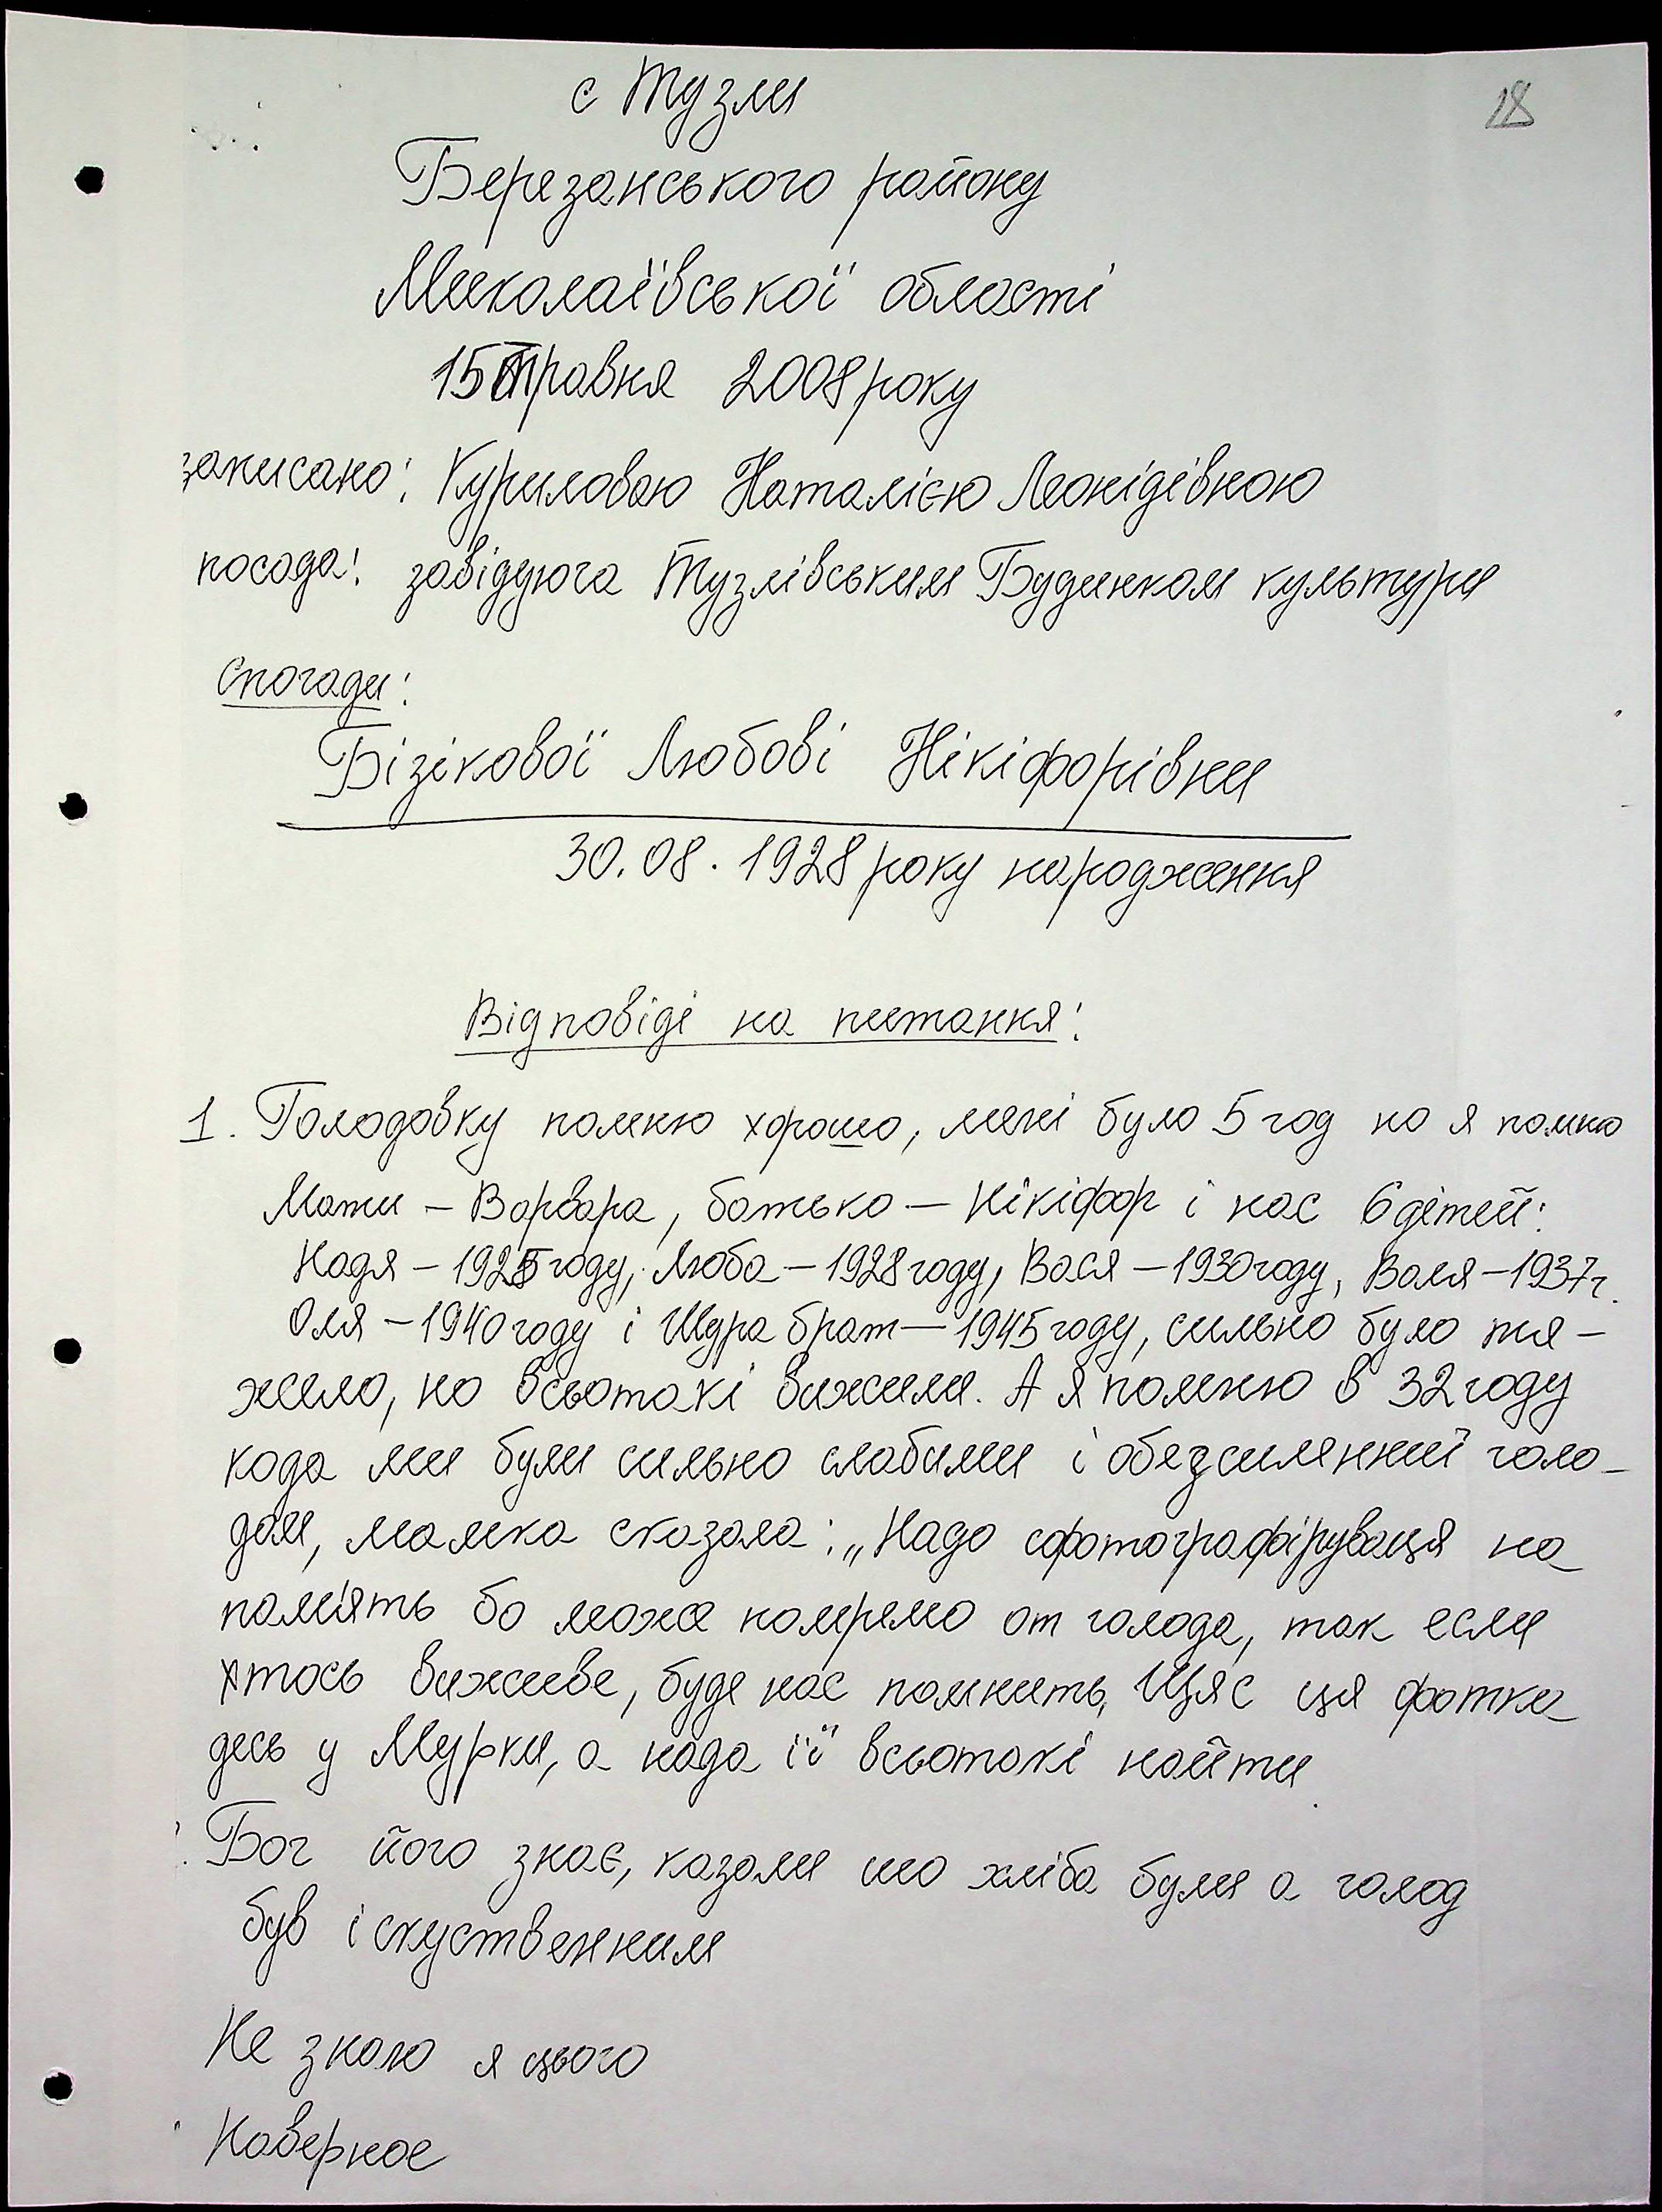 18
с Тузли
Березанського району
Миколаївської області
15 травня 2008 року
записано: Куриловою Наталією Леонідівною
посада: завідуюча Тузлівським Будинком культури
Спогади:
Бізікової Любові Нікіфорівни
30.08.1928 року народження
Відповіді на питання:
1. Голодовку помню хорошо, мені було 5 год но я помню
Мати – Варвара, батько – Нікіфор і нас 6 дітей:
Надя – 1925 году, Люба – 1928 году, Вася – 1930 году, Валя – 1937 г.
Оля – 1940 году і Шура брат – 1945 году, сильно було тя-
жело, но всьотакі вижили. А я помню в 32 году
кода ми були сильно слабими і обезсиленниї голо-
дом, мамка сказала: „Надо сфотографіруваця на
пам'ять бо може помремо от голода, так если
хтось виживе, буде нас помнить, Щяс ця фотка
десь у Мурки, а нада її всьотакі найти.
Бог його знає, казали шо хліба були а голод
був іскуственним
Не знаю я цього
Наверное